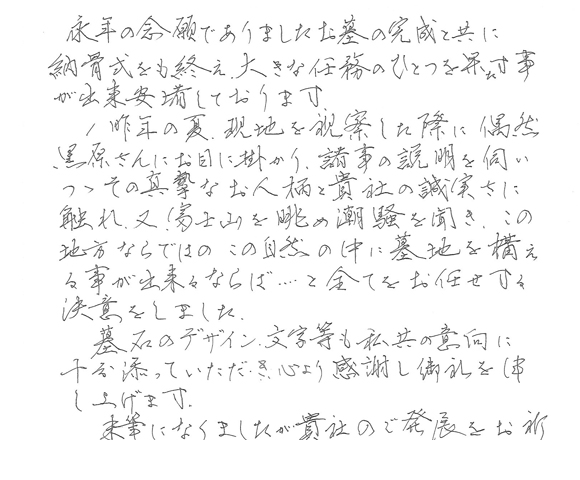 永年の念願でありましたお墓の完成と共に
納骨式をも終え、大きな任務のひとつを果たす事
が出来安堵しております。
昨年の夏、現地を視察した際に偶然
黒原さんにお目に掛かり、諸事の説明を伺い
つつその真摯なお人柄と貴社の誠実さに
触れ、又、富士山を眺め潮騒を聞き、この
地方ならではのこの自然の中に墓地を構え
る事が出来るならば…と全てをお任せする
決意をしました。
墓石のデザイン、文字等も私共の意向に
十分添っていただき心より感謝し御礼を申
し上げます。
末筆になりましたが貴社のご発展をお祈